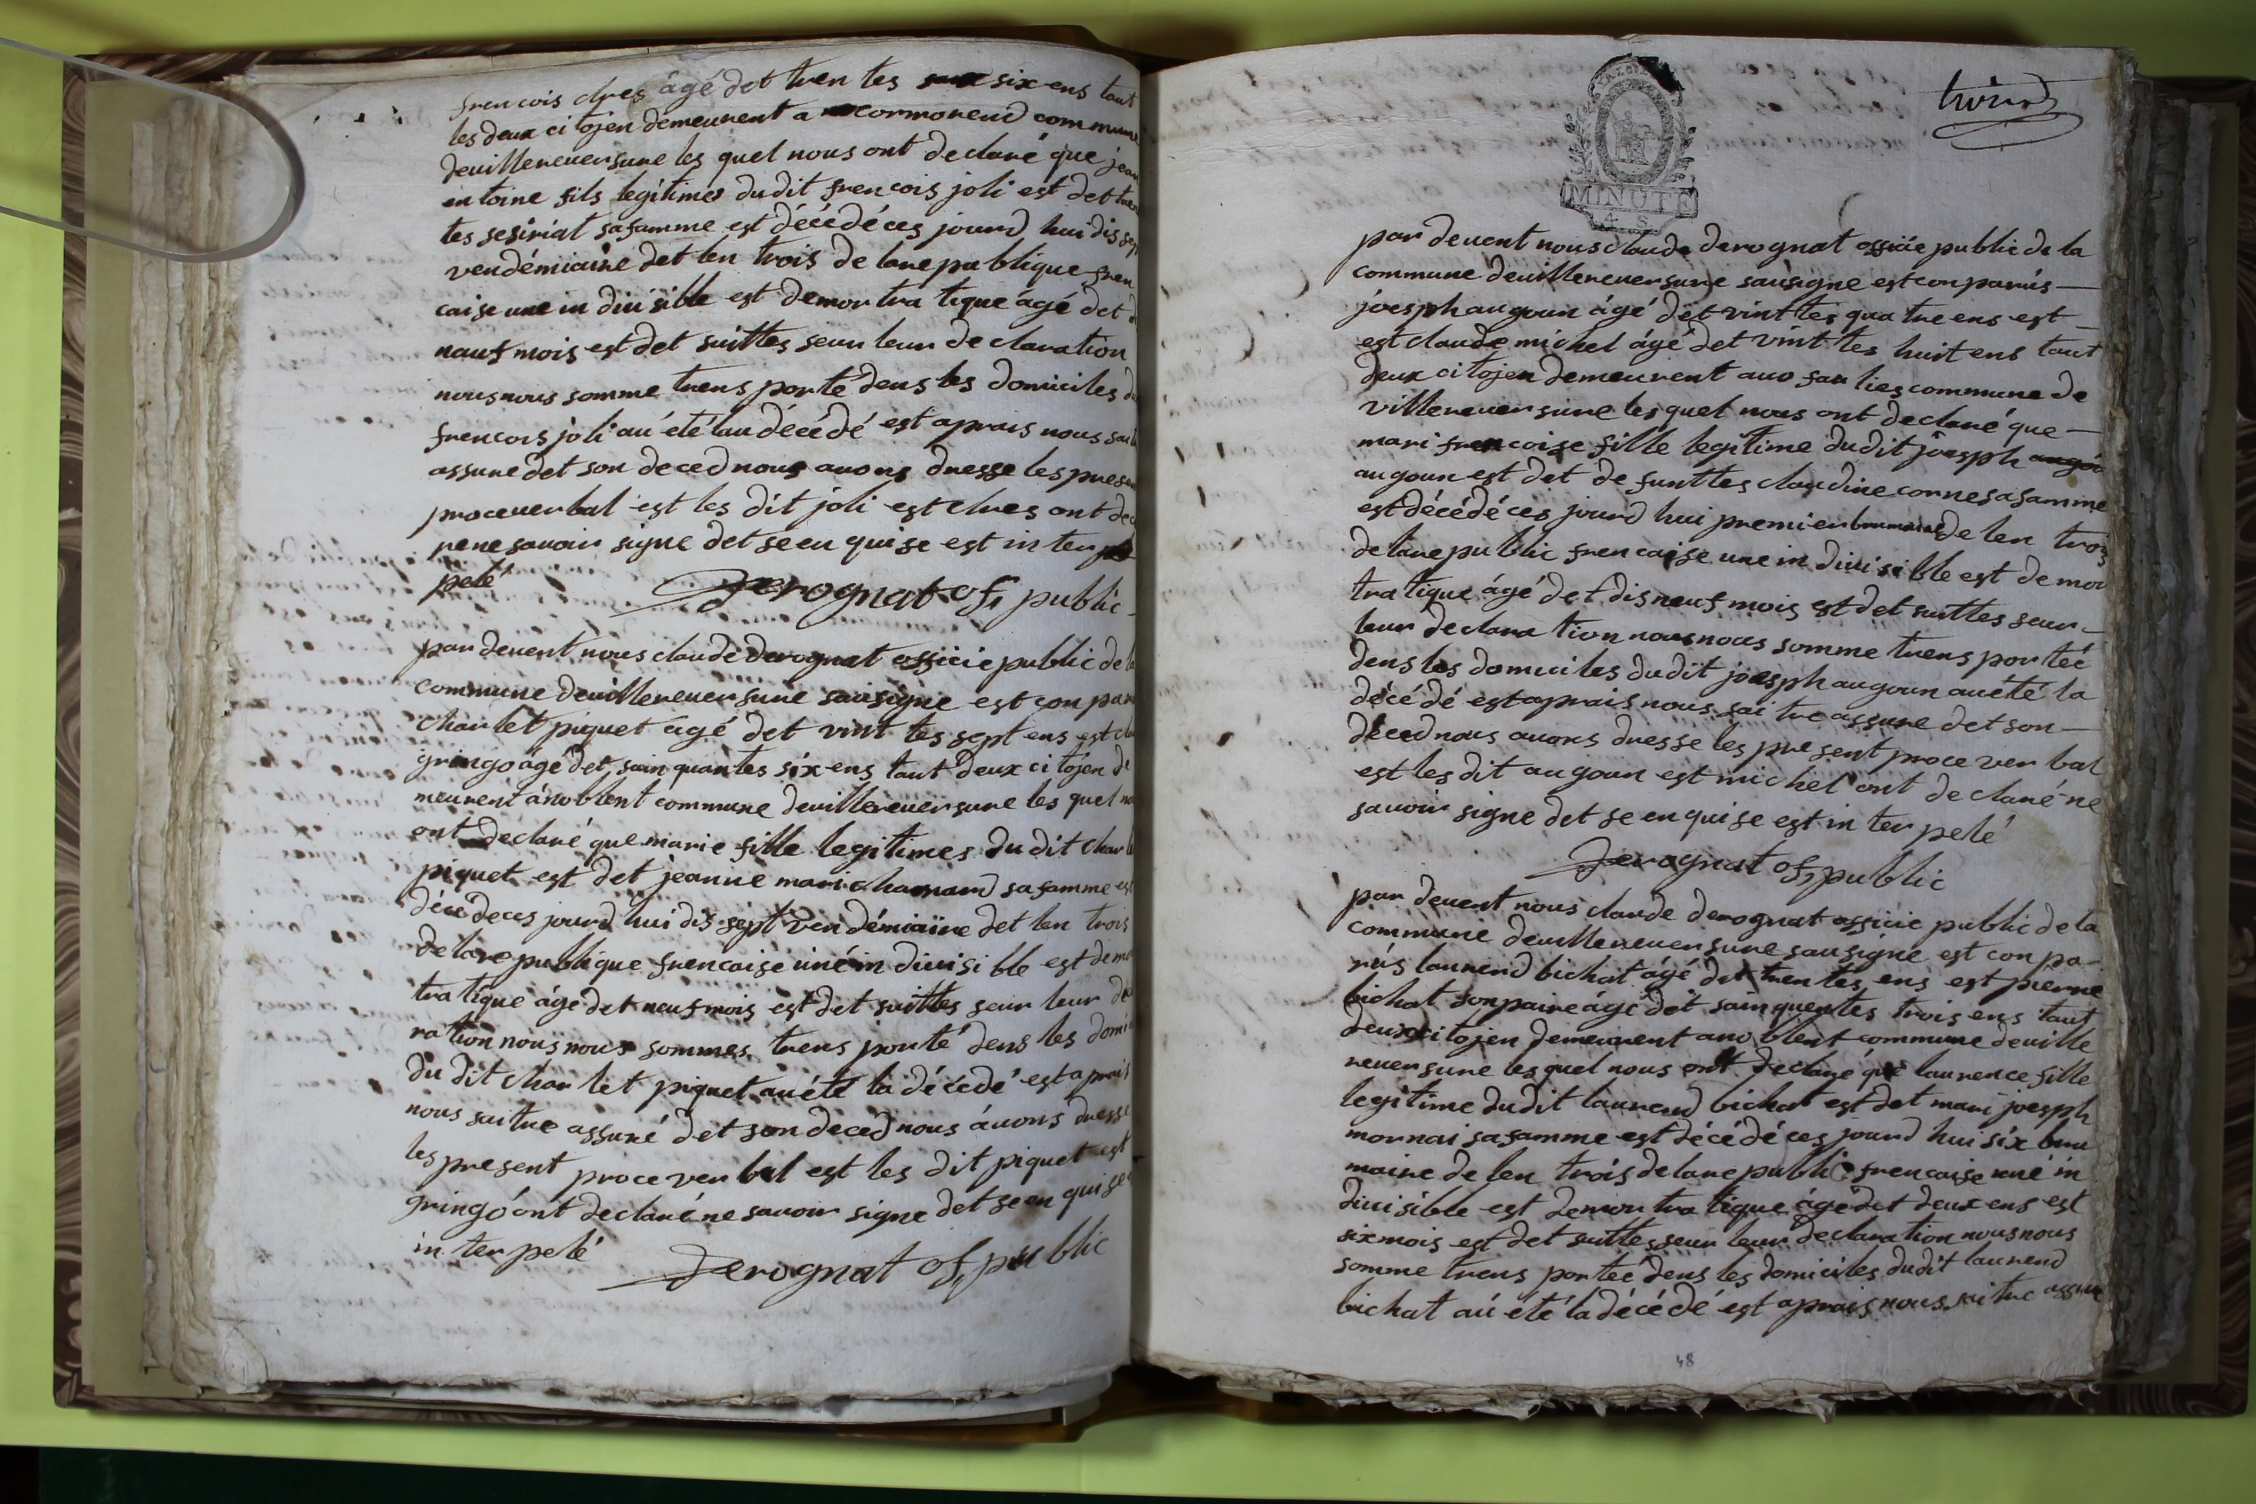 frencois cheg âgé det tren tes six ens tout
les deux ci tojen demeurent a cormorend commune
deuillereuersure les quel nous ont declaré que jean
en toine fils legitimes du dit frencois joli est det
tes sa famme est décédé ces jourd hui dis sep
vendémiaire det len trois de lare publique fren
caise une in diuisible est demon tra tique agé det d
nauf mois est det suittes seur leur de claration
nous nous somme trens porté dens les domiciles du
frencois joli au été lau décédé est aprais nous
assure det son deced nous auons dresse les presen
proceuerbal est les dit joli est ont dec
rene sauoir signe det se en qui se est in ter
pelé
Derognat of, public
par deuent nous claude derognat officie public de la
commune deuillereuersure sausigne est con paru
charlet piquet agé det vint tes sept ens est
gringo agé det sain quantes six ens taut deux ci tojen de
meurent a noblent commune deuillereuersure les quel no
ont declaré que marie fille legitimes du dit charle
piquet est det jeanne mari chanard sa famme est
décédé ces jourd hui dis sept ven démiaire det len trois
de lare publique frencaise une in diuisi ble est demon
tra tique agé det neuf mois est det suittes seur leur de
ration nous nous sommes trens porté dens les domi
du dit char let piquet au été la décédé est aprais
nous saitre assuré det son deced nous áuons dresse
les present proce ver bal est les dit piquet est
gringo ont declaré ne sauoir signe det se en qui se
in ter pelé
Derognat of, public
MINUTE
4 S
par deuent nous claude derognat officie public de la
commune deuillereuersure sausigne est conparús
joesph augoun ágé det vint tes qua tre ens est
est claude michel ágé det vint tes huit ens taut
deux ci tojen demeurent auo lies commune de
villereuersure les quel nous ont declaré que
mari frencoise fille legitime du dit joesph
augoun est det de funttes claudine corne sa famme
est décédé ces jourd hui premier brumaire de len trois
de lare public frencaise une in diuisi ble est demon
tra tique ágé det dis neuf mois est det suittes seur
leur declara tion nous nous somme trens porteé
dens les domiciles du dit joesph augoun au été la
décédé est aprais nous sai tre assure det son
deced nous auons dresse les present proce ver bal
est les dit augoun est michel ont declaré ne
sauoir signe det se en qui se est in ter pelé
Derognat of, public
par deuent nous claude derognat officie public de la
commune deuillereuersure sausigne est con pa
rús laurend bichat ágé det tren tes ens est pierre
bichat son paire ágé det sainquentes trois ens taut
deux ci tojen demeurent a no blent commune deuille
reuersure les quel nous ont declaré que laurence fille
legitime du dit laurend bichat est det mari joesph
mornai sa famme est décédé ces jourd hui six bru
maire de len trois de lare public frencaise une in
diuisible est demon tra tique ágé det deux ens est
six mois est det suittes seur leur declaration nous nous
somme trens porteé dens les domiciles du dit laurend
bichat au été la décédé est aprais nous sai tre assure
48